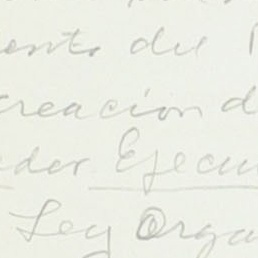 ento del P
creación d
eder Ejecu
Ley Orga